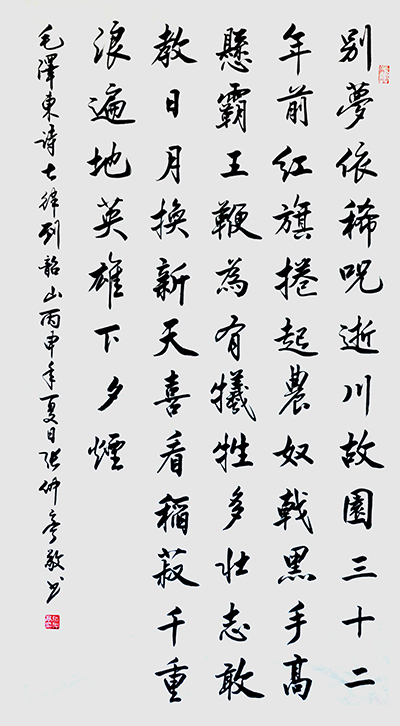 別夢依稀呪逝川故園三十二
年前紅旗捲起農奴戟黑手高
懸霸王鞭為有犧牲多壯志敢
教日月換新天喜看稻菽千重
浪遍地英雄下夕煙
毛澤東詩七律到韶山丙申年夏日张仲亭敬书